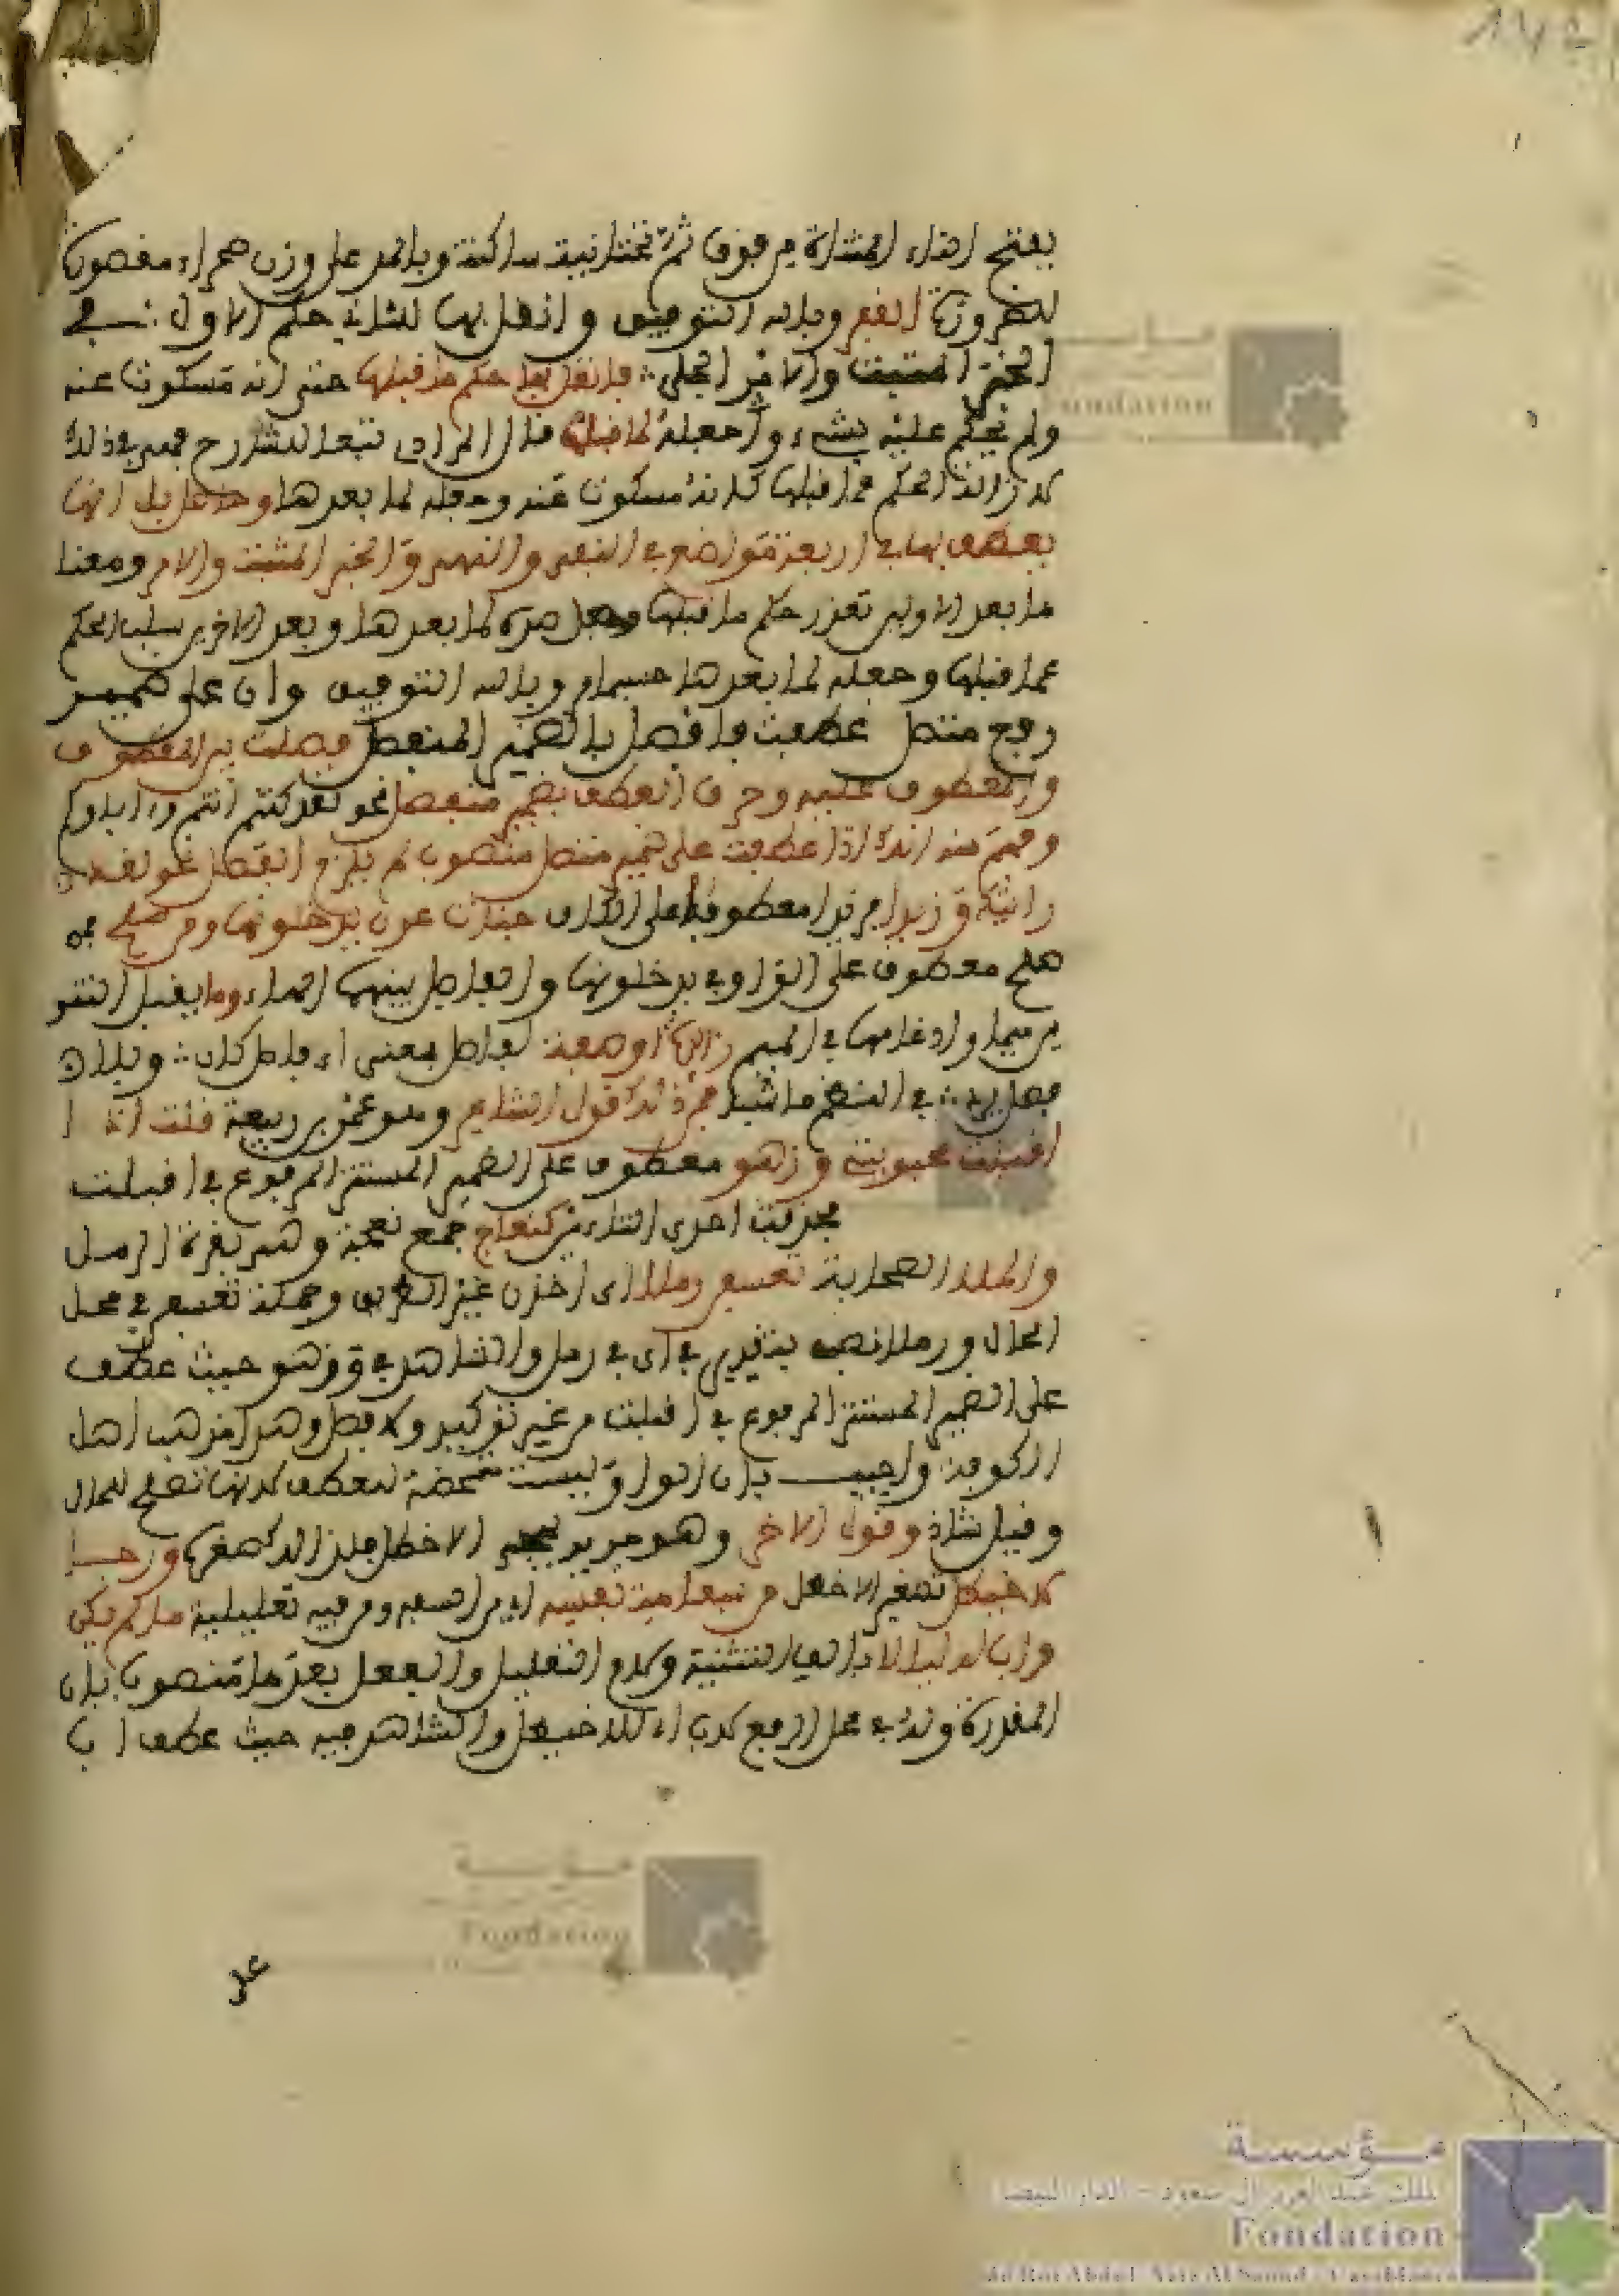 142
بفتح التاء المثناة من فوق ثم تحتانية ساكنة وبالمد على وزن صحراء مقصورة
للضرورة القفر وبالله التوفيق وانقل بها للثاني حكم الاول في
الخبر المثبت والامر الجلي فانقل بها حكم ما قبلها حتى انه مسكوت عنه
ولم يحكم عليه بشيء واجعله لما قبلها قال المرادي تبعا للشارح فهي بعد ذلك
لازالة الحكم عما قبلها كانه مسكوت عنه وجعله لما بعدها وحاصل بل انها
يعطف بها في اربعة مواضع في النفي والنهي والخبر المثبت والامر ومعنا
ما بعد الاولين تقرر حكم ما قبلها وجعل ضده لما بعدها وبعد الاخرين سلب الحكم
عما قبلها وجعله لما بعدها حسبما مر وبالله التوفيق وان على ضمير
رفع متصل عطفت فافصل بالضمير المنفصل فصلت بين المعطوف
والمعطوف عليه وحرف العطف بضمير منفصل نحو لقد كنتم انتم وءاباوكم
وفهم منه انه اذا عطفت على ضمير متصل منصوب لم يلزم الفصل نحو لقد
رايتك وزيدا معطوفا على الكاف جنات عدن يدخلونها ومن صلح من
صلح معطوف على الواو في يدخلونها والفاصل بينهما الهاء وما بقلب التنو
ين ميما وادغامها في الميم زائدة او صفة لفاصل بمعنى اي فاصل كان وبلا
فصل يرد في النظم فاشيا من ذلك قول الشاعر وهو عمر بن ربيعة قلت اذ ا
اقبلت محبوبته وزهر معطوف على الضمير المستتر المرفوع في اقبلت
فحذفت احدى التاءين كنعاج جمع نعجة وهي بقرة الرمل
والملا الصحارية تعسفن رملا اي اخذن غير الطريق وجملة تعسفن في محل
الحال ورملا نصب بتقدير في اي في رمل والشاهد في وزهر حيث عطف
على الضمير المستتر المرفوع في اقبلت من غير توكيد ولا فصل وهذا مذهب اهل
الكوفة واجيب بان الواو ليست متمحضة للعطف لانها تصلح للحال
وقيل شاذ وقول الاخر وهو جرير يهجو الاخطل فلذا لك صغره ورجا
لاخيطل تصغير الاخطل من سفاهة نفسه اي من السفه ومن فيه تعليلية ما لم يكن
واب له لينالا بالف التثنية ولام التعليل والفعل بعدها منصوب بان
المقدرة وله في محل الرفع لاب اي للاخيطل والشاهد فيه حيث عطف اب
على
مؤسسة
الملك عبد العزيز ال سعود - الدار البيضاء
Fondation
du Roi Abdul Aziz Al Saoud - Casablanca